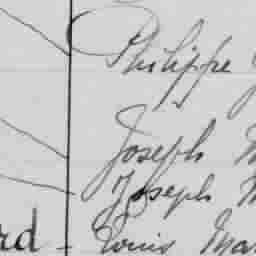 Philippe
Joseph M
Joseph M
rd - Louis Mar